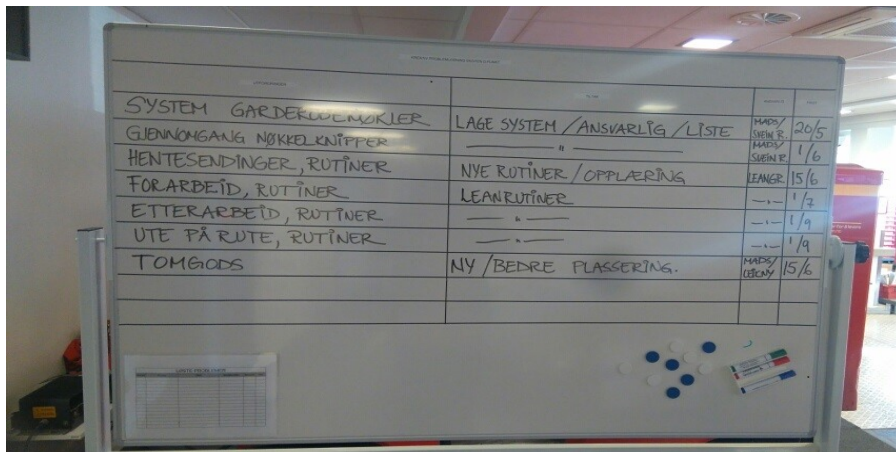 SYSTEM GARDEROBENØKLER LAGE SYSTEM / ANSVARLIG / LISTE MADS/ SVEIN R. 20/5
GJENNOMGANG NØKKELKNIPPER — " — MADS/ SVEIN R. 1/6
HENTESENDINGER, RUTINER NYE RUTINER / OPPLÆRING LEANGR. 15/6
FORARBEID, RUTINER LEANRUTINER — " — 1/7
ETTERARBEID, RUTINER — " — — " — 1/9
UTE PÅ RUTE, RUTINER — " — — " — 1/9
TOMGODS NY / BEDRE PLASSERING. MADS/ 15/6